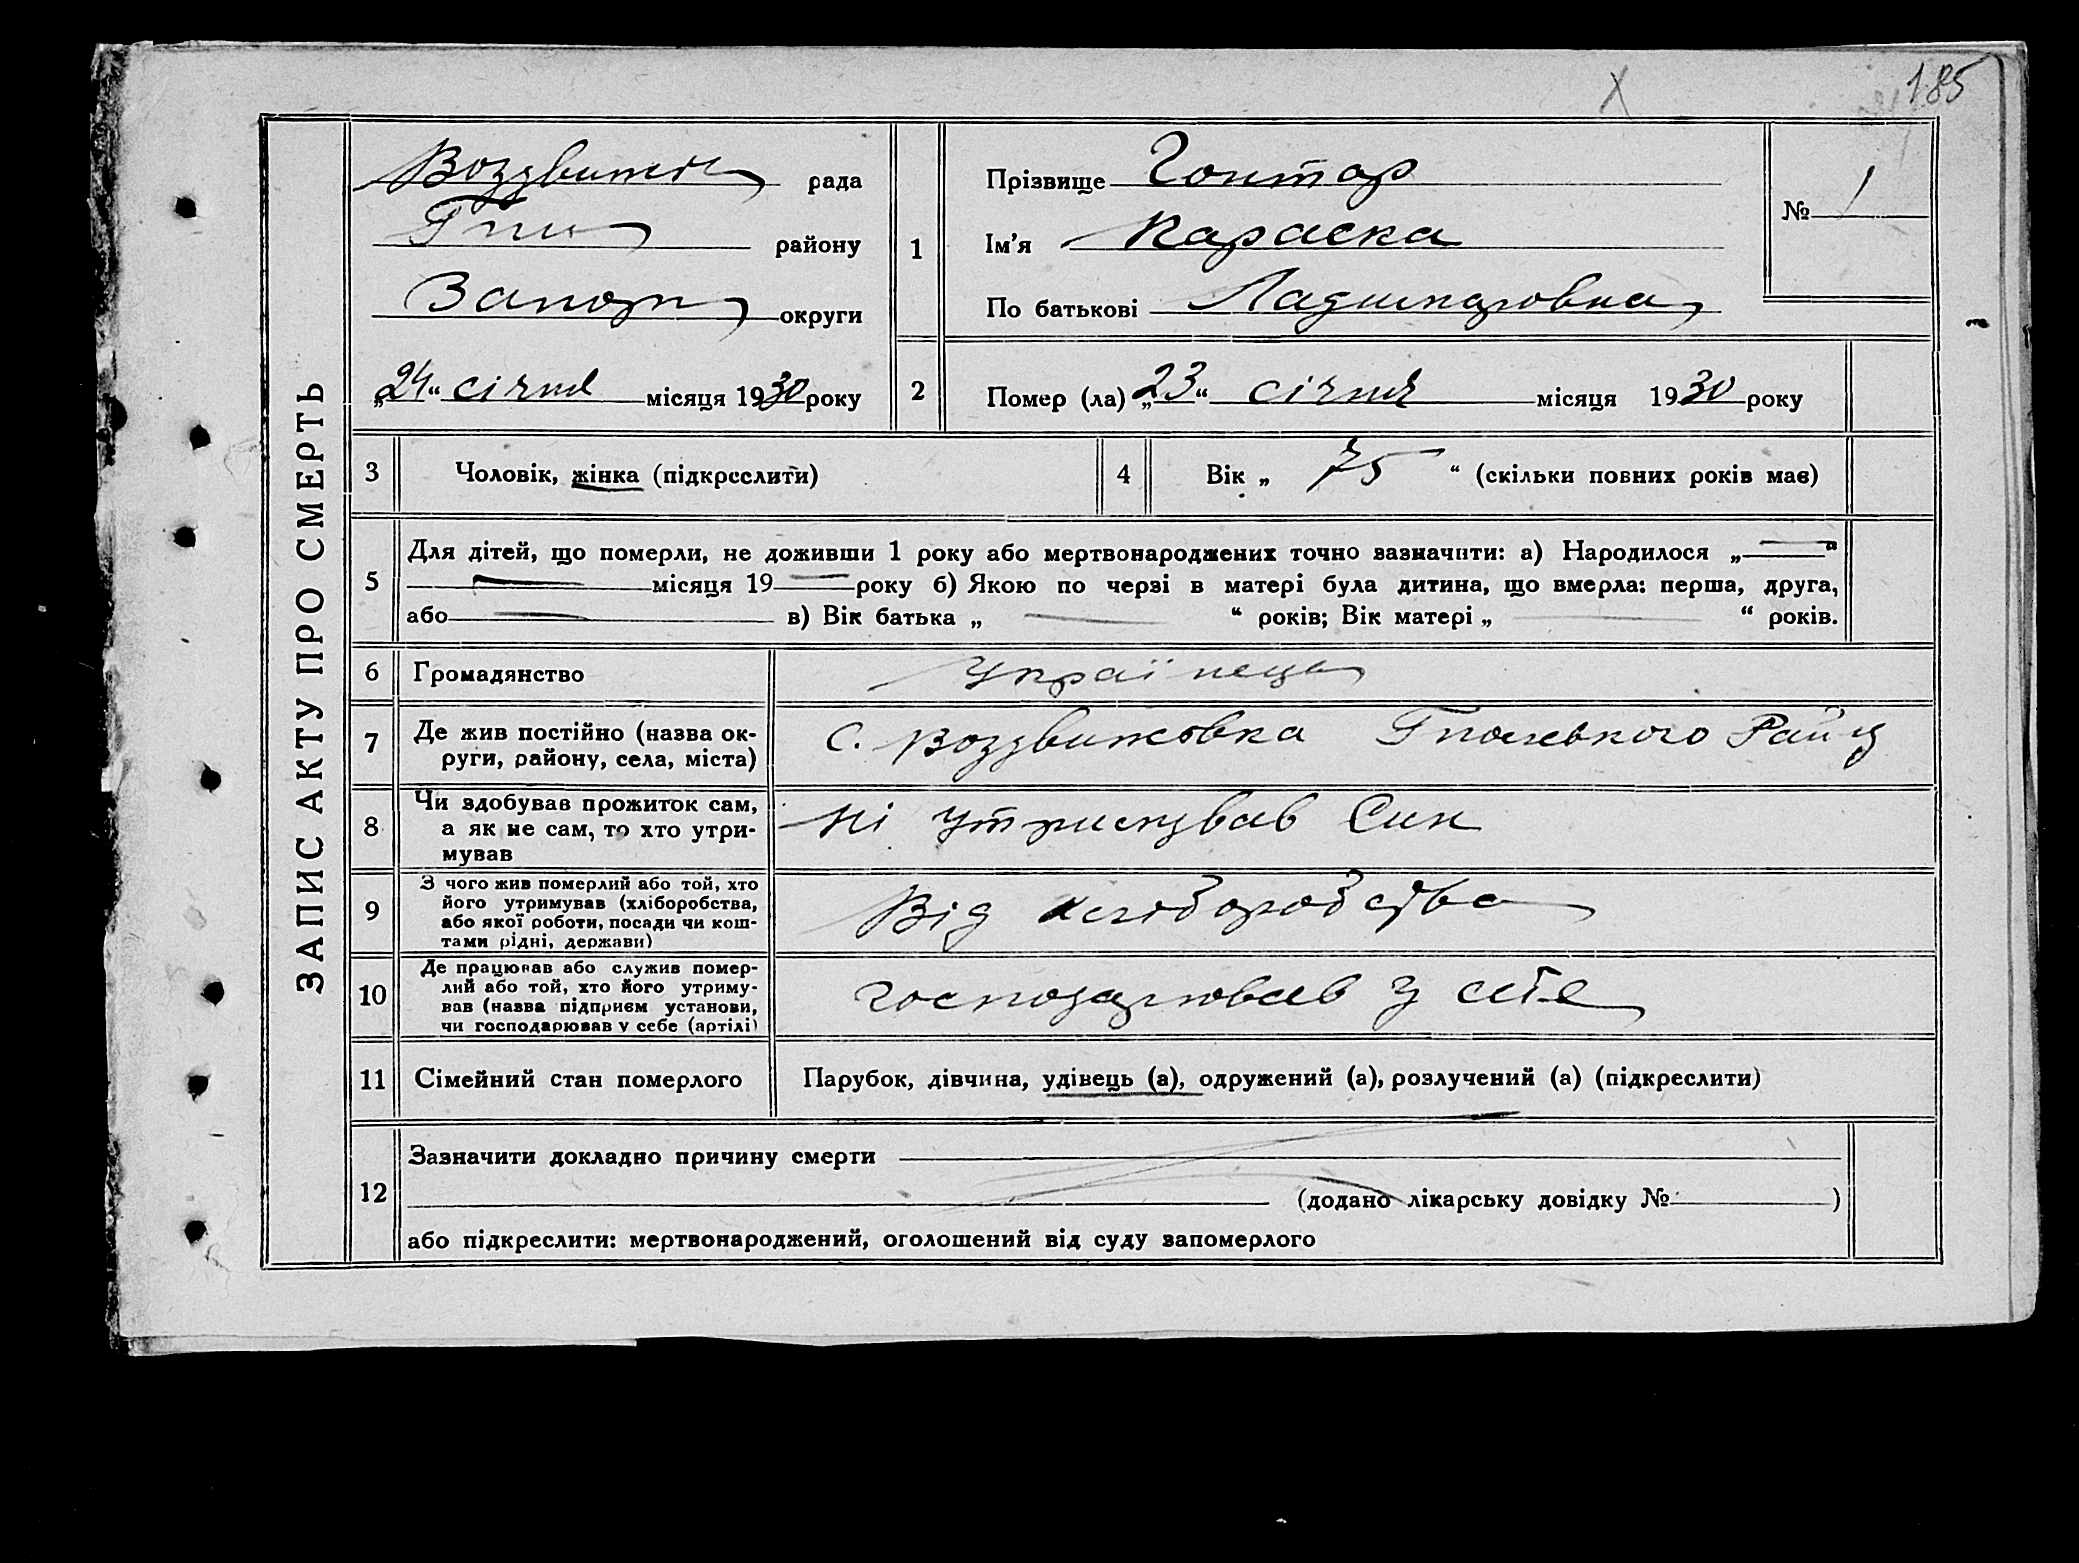 185
ЗАПИС АКТУ ПРО СМЕРТЬ
Воздвижен рада
району
Запор округи
„24“ січня місяця 1930 року
1
Прізвище Гонтар
Ім’я Параска
По батькові
№ 1
2
Помер (ла) „23“ січня місяця 1930 року
3
Чоловік, жінка (підкреслити)
4
Вік „ 75 “ (скільки повних років має)
5
Для дітей, що померли, не доживши 1 року або мертвонароджених точно зазначити: а) Народилося „ “
місяця 19 року б) Якою по черзі в матері була дитина, що вмерла: перша, друга,
або в) Вік батька „ “ років; Вік матері „ “ років.
6
Громадянство
Українець
7
Де жив постійно (назва ок-
руги, району, села, міста)
с. Воздвижовка Району
8
Чи здобував прожиток сам,
а як не сам, то хто утри-
мував
Ні утримував Син
9
З чого жив померлий або той, хто
його утримував (хліборобства,
або якої роботи, посади чи кош-
тами рідні, держави)
Від хліборобства
10
Де працював або служив помер-
лий або той, хто його утриму-
вав (назва підприєм установи,
чи господарював у себе (артілі)
господарював у себе
11
Сімейний стан померлого
Парубок, дівчина, удівець (а), одружений (а), розлучений (а) (підкреслити)
12
Зазначити докладно причину смерти
(додано лікарську довідку № )
або підкреслити: мертвонароджений, оголошений від суду запомерлого